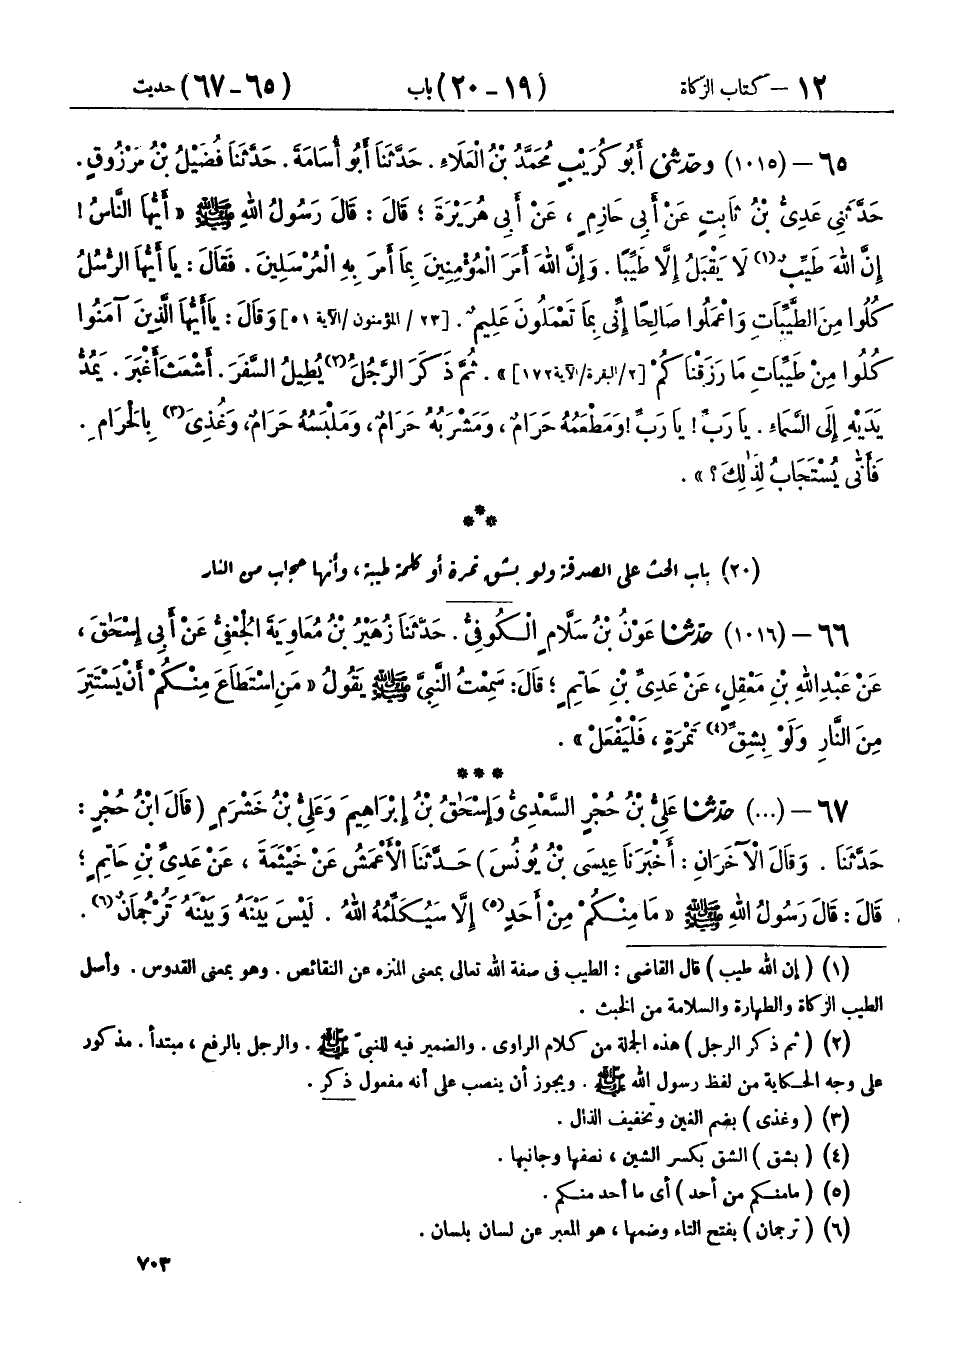 ١٢ – كتاب الزكاة (١٩ – ٢٠) باب (٦٥ – ٦٧) حديث
٦٥ – (١٠١٥) وحدثنى أَبُو كُرَيْبٍ مُحَمَّدُ بْنُ الْعَلَاءِ. حَدَّثَنَا أَبُو أُسَامَةَ. حَدَّثَنَا فُضَيْلُ بْنُ مَرْزُوقٍ.
حَدَّثَنِي عَدِىُّ بْنُ ثَابِتٍ عَنْ أَبِي حَازِمٍ، عَنْ أَبِي هُرَيْرَةَ؛ قَالَ: قَالَ رَسُولُ اللهِ ﷺ «أَيُّهَا النَّاسُ!
إِنَّ اللهَ طَيِّبٌ(١) لَا يَقْبَلُ إِلَّا طَيِّبًا. وَإِنَّ اللهَ أَمَرَ الْمُؤْمِنِينَ بِمَا أَمَرَ بِهِ الْمُرْسَلِينَ. فَقَالَ: يَا أَيُّهَا الرُّسُلُ
كُلُوا مِنَ الطَّيِّبَاتِ وَاعْمَلُوا صَالِحًا إِنِّى بِمَا تَعْمَلُونَ عَلِيمٌ. [٢٣ / المؤمنون /الآية ٥١] وَقَالَ: يَاأَيُّهَا الَّذِينَ آمَنُوا
كُلُوا مِنْ طَيِّبَاتِ مَا رَزَقْنَاكُمْ [٢/البقرة/الآية١٧٢]». ثُمَّ ذَكَرَ الرَّجُلُ(٢) يُطِيلُ السَّفَرَ. أَشْعَثَ أَغْبَرَ. يَمُدُّ
يَدَيْهِ إِلَى السَّمَاءِ. يَا رَبِّ! يَا رَبِّ! وَمَطْعَمُهُ حَرَامٌ، وَمَشْرَبُهُ حَرَامٌ، وَمَلْبَسُهُ حَرَامٌ، وَغُذِىَ(٣) بِالْحَرَامِ.
فَأَنَّى يُسْتَجَابُ لِذَٰلِكَ؟».
***
(٢٠) باب الحث على الصدقة ولو بشق تمرة أو كلمة طيبة، وأنها حجاب من النار
٦٦ – (١٠١٦) حدثنا عَوْنُ بْنُ سَلَّامٍ الْكُوفِىُّ. حَدَّثَنَا زُهَيْرُ بْنُ مُعَاوِيَةَ الْجُعْفِىُّ عَنْ أَبِي إِسْحَٰقَ،
عَنْ عَبْدِ اللهِ بْنِ مَعْقِلٍ، عَنْ عَدِىِّ بْنِ حَاتِمٍ؛ قَالَ: سَمِعْتُ النَّبِىَّ ﷺ يَقُولُ «مَنِ اسْتَطَاعَ مِنْكُمْ أَنْ يَسْتَتِرَ
مِنَ النَّارِ وَلَوْ بِشِقِّ(٤) تَمْرَةٍ، فَلْيَفْعَلْ».
***
٦٧ – (...) حدثنا عَلِىُّ بْنُ حُجْرٍ السَّعْدِىُّ وَإِسْحَٰقُ بْنُ إِبْرَاهِيمَ وَعَلِىُّ بْنُ خَشْرَمٍ (قَالَ ابْنُ حُجْرٍ:
حَدَّثَنَا. وَقَالَ الْآخَرَانِ: أَخْبَرَنَا عِيسَى بْنُ يُونُسَ) حَدَّثَنَا الْأَعْمَشُ عَنْ خَيْثَمَةَ، عَنْ عَدِىِّ بْنِ حَاتِمٍ؛
قَالَ: قَالَ رَسُولُ اللهِ ﷺ «مَا مِنْكُمْ مِنْ أَحَدٍ(٥) إِلَّا سَيُكَلِّمُهُ اللهُ. لَيْسَ بَيْنَهُ وَبَيْنَهُ تُرْجُمَانٌ(٦).
(١) (إن الله طيب) قال القاضى: الطيب فى صفة الله تعالى بمعنى المنزه عن النقائص. وهو بمعنى القدوس. وأصل
الطيب الزكاة والطهارة والسلامة من الخبث.
(٢) (ثم ذكر الرجل) هذه الجملة من كلام الراوى. والضمير فيه للنبىّ ﷺ. والرجل بالرفع، مبتدأ. مذكور
على وجه الحكاية من لفظ رسول الله ﷺ. ويجوز أن ينصب على أنه مفعول ذكر.
(٣) (وغذى) بضم الغين وتخفيف الذال.
(٤) (بشق) الشق بكسر الشين، نصفها وجانبها.
(٥) (مامنكم من أحد) أى ما أحد منكم.
(٦) (ترجمان) بفتح التاء وضمها، هو المعبر عن لسان بلسان.
٧٠٣